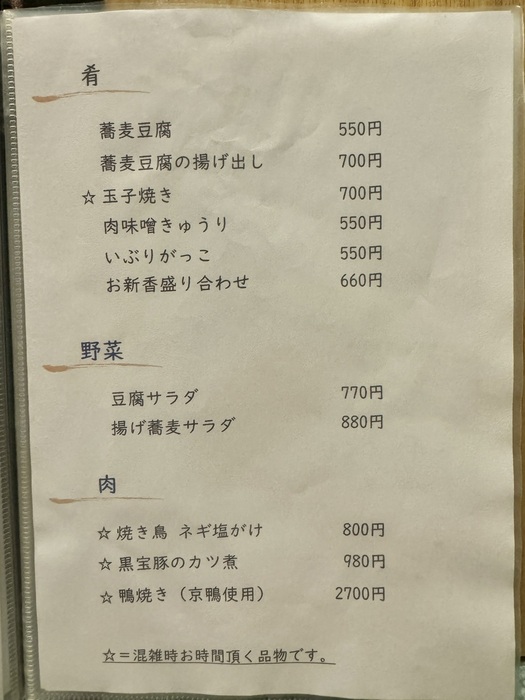 肴
蕎麦豆腐 550円
蕎麦豆腐の揚げ出し 700円
☆玉子焼き 700円
肉味噌きゅうり 550円
いぶりがっこ 550円
お新香盛り合わせ 660円
野菜
豆腐サラダ 770円
揚げ蕎麦サラダ 880円
肉
☆焼き鳥 ネギ塩がけ 800円
☆黒宝豚のカツ煮 980円
☆鴨焼き（京鴨使用） 2700円
☆＝混雑時お時間頂く品物です。